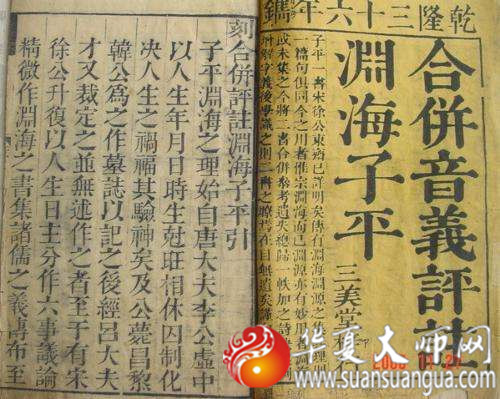 乾隆三十六年鐫
合併音義評註
淵海子平
三美堂
子平一書宋徐公東齋已詳明矣傳有淵海淵源之集理則
一篇句俱同今之用者惟宗淵海而已淵源亦有妙用者
或未集之今將二書合併參考遺失總歸一帙加之詩
刻合併評註淵海子平引
子平淵海之理始自唐大夫李公虛中
以人生年月日時生尅旺相休囚制化
決人生之禍福其驗神矣及公薨昌黎
韓公爲之作墓誌以記之後經呂大夫
才又裁定之並無述作之者至于有宋
徐公升復以人生日主分作六事議論
精微作淵海之書集諸儒之義傳布至
华夏大师网
www.suansuangua.com